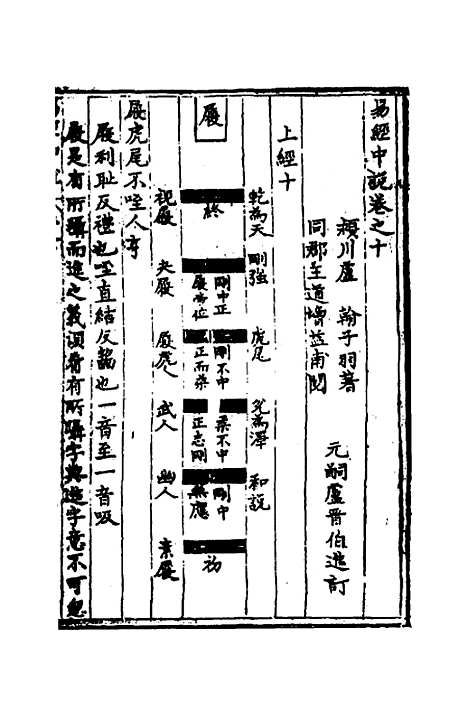 易經中說卷之十
潁川盧 翰子羽著
同郡王道增益甫閱
元嗣盧晋伯進訂
上經十
乾為天 剛強 虎尾 兌為澤 和説
履
終
剛中正 履帝位
剛不中 正而乘
柔不中 正志剛
剛中 無應
初
視履 夬履 履虎 武人 幽人 素履
履虎尾不咥人亨
履利耻反禮也咥直結反齧也一音至一音吸
履是有所躡而進之義須看有所躡字與進字意不可忽